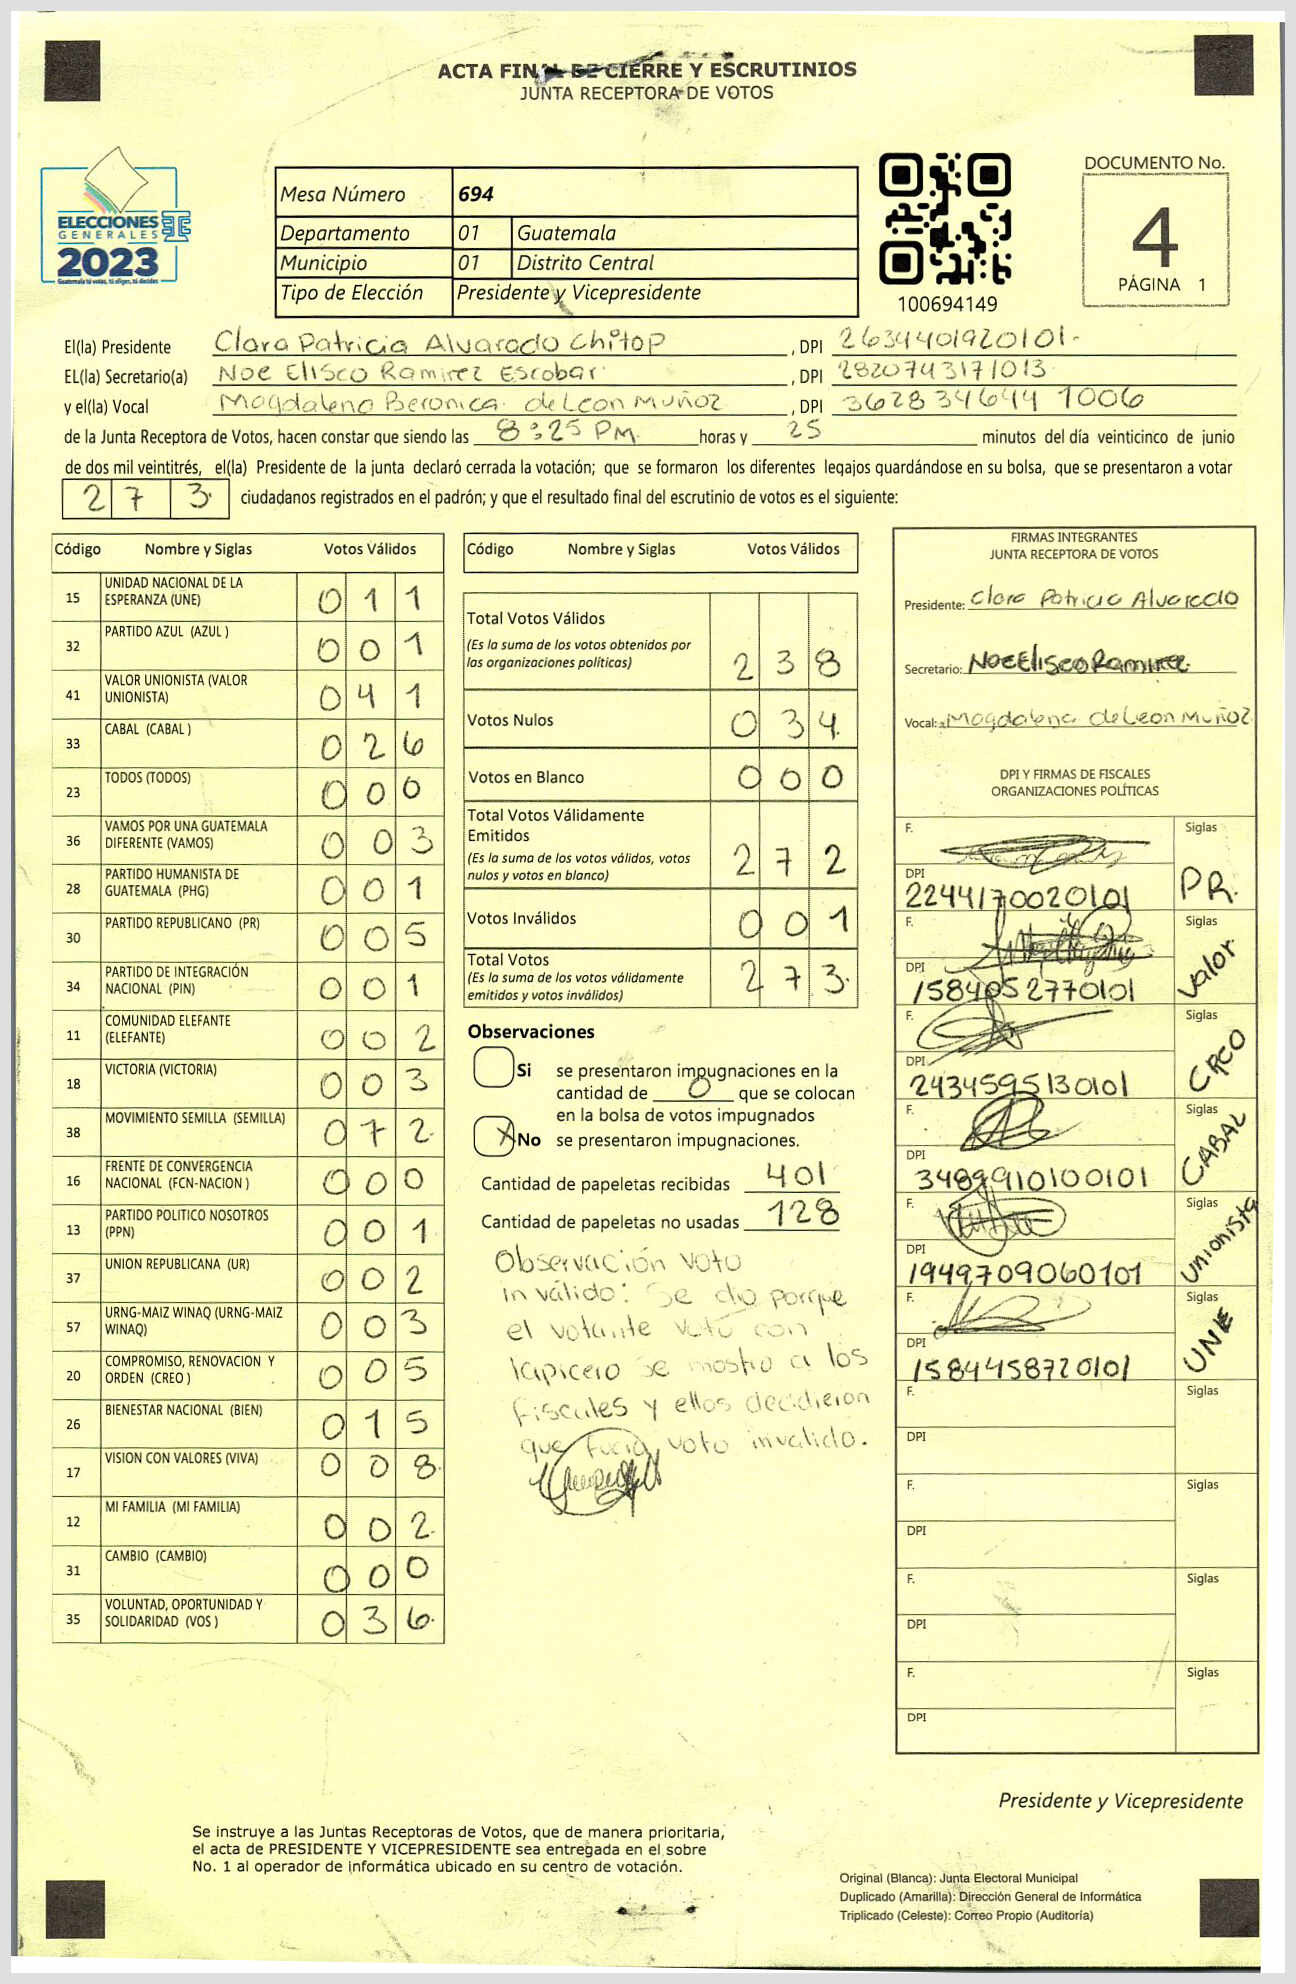 ACTA FINAL DE CIERRE Y ESCRUTINIOS
JUNTA RECEPTORA DE VOTOS
ELECCIONES
GENERALES
2023
Guatemala tú votas, tú eliges, tú decides
Mesa Número 694
Departamento 01 Guatemala
Municipio 01 Distrito Central
Tipo de Elección Presidente y Vicepresidente
100694149
DOCUMENTO No.
4
PÁGINA 1
El(la) Presidente Clara Patricia Alvarado Chitop, DPI 2634401920101.
EL(la) Secretario(a) Noe Elisco Ramirez Escobar, DPI 2820743171013
y el(la) Vocal Magdalena Beronica de Leon Muñoz, DPI 3628346441006
de la Junta Receptora de Votos, hacen constar que siendo las 8:25 PM. horas y 25 minutos del día veinticinco de junio
de dos mil veintitrés, el(la) Presidente de la junta declaró cerrada la votación; que se formaron los diferentes legajos guardándose en su bolsa, que se presentaron a votar
273 ciudadanos registrados en el padrón; y que el resultado final del escrutinio de votos es el siguiente:
Código Nombre y Siglas Votos Válidos
15 UNIDAD NACIONAL DE LA ESPERANZA (UNE) 011
32 PARTIDO AZUL (AZUL ) 001
41 VALOR UNIONISTA (VALOR UNIONISTA) 041
33 CABAL (CABAL ) 026
23 TODOS (TODOS) 000
36 VAMOS POR UNA GUATEMALA DIFERENTE (VAMOS) 003
28 PARTIDO HUMANISTA DE GUATEMALA (PHG) 001
30 PARTIDO REPUBLICANO (PR) 005
34 PARTIDO DE INTEGRACIÓN NACIONAL (PIN) 001
11 COMUNIDAD ELEFANTE (ELEFANTE) 002
18 VICTORIA (VICTORIA) 003
38 MOVIMIENTO SEMILLA (SEMILLA) 072
16 FRENTE DE CONVERGENCIA NACIONAL (FCN-NACION ) 000
13 PARTIDO POLITICO NOSOTROS (PPN) 001
37 UNION REPUBLICANA (UR) 002
57 URNG-MAIZ WINAQ (URNG-MAIZ WINAQ) 003
20 COMPROMISO, RENOVACION Y ORDEN (CREO ) 005
26 BIENESTAR NACIONAL (BIEN) 015
17 VISION CON VALORES (VIVA) 008
12 MI FAMILIA (MI FAMILIA) 002
31 CAMBIO (CAMBIO) 000
35 VOLUNTAD, OPORTUNIDAD Y SOLIDARIDAD (VOS ) 036
Código Nombre y Siglas Votos Válidos
Total Votos Válidos
(Es la suma de los votos obtenidos por
las organizaciones políticas) 238
Votos Nulos 034
Votos en Blanco 000
Total Votos Válidamente
Emitidos
(Es la suma de los votos válidos, votos
nulos y votos en blanco) 272
Votos Inválidos 001
Total Votos
(Es la suma de los votos válidamente
emitidos y votos inválidos) 273
Observaciones
Si se presentaron impugnaciones en la
cantidad de 0 que se colocan
en la bolsa de votos impugnados
X No se presentaron impugnaciones.
Cantidad de papeletas recibidas 401
Cantidad de papeletas no usadas 128
Observación voto
inválido: Se dio porque
el votante votó con
lapicero se mostro a los
fiscales y ellos decidieron
que fuera voto invalido.
FIRMAS INTEGRANTES
JUNTA RECEPTORA DE VOTOS
Presidente: Clara Patricia Alvarado
Secretario: Noe Elisco Ramirez
Vocal: Magdalena de Leon Muñoz
DPI Y FIRMAS DE FISCALES
ORGANIZACIONES POLÍTICAS
F. Siglas
DPI 2244170020101 PR.
F. Siglas
DPI 1584052770101 Valor
F. Siglas
DPI 2434595130101 CREO
F. Siglas
DPI 3489910100101 CABAL
F. Siglas
DPI 1949709060101 Unionista
F. Siglas
DPI 1584458720101 UNE
F. Siglas
DPI
F. Siglas
DPI
F. Siglas
DPI
F. Siglas
DPI
Presidente y Vicepresidente
Se instruye a las Juntas Receptoras de Votos, que de manera prioritaria,
el acta de PRESIDENTE Y VICEPRESIDENTE sea entregada en el sobre
No. 1 al operador de informática ubicado en su centro de votación.
Original (Blanca): Junta Electoral Municipal
Duplicado (Amarilla): Dirección General de Informática
Triplicado (Celeste): Correo Propio (Auditoría)